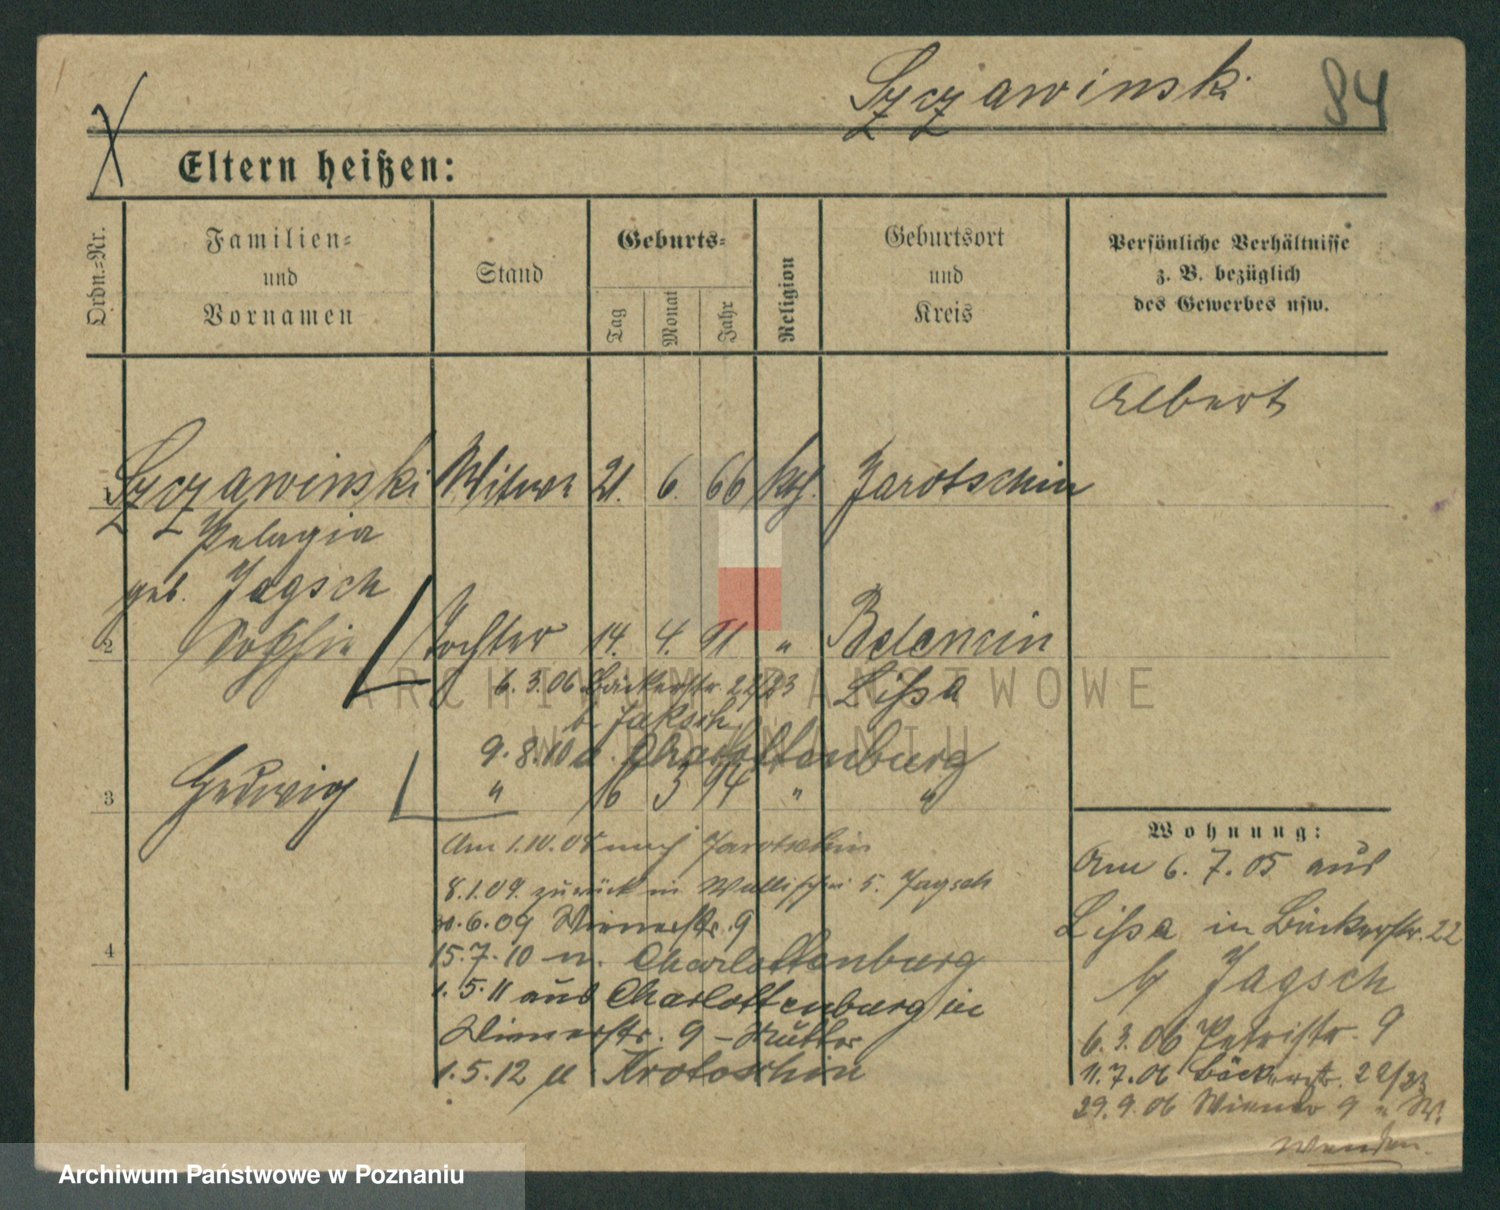 Szczawinski 84
Eltern heißen:
Ordn.-Nr.
Familien- und Vornamen
Stand
Geburts-
Tag
Monat
Jahr
Religion
Geburtsort und Kreis
Persönliche Verhältnisse
z. B. bezüglich
des Gewerbes usw.
Albert
1 Szczawinski Witwe 21. 6. 66 kth. Jarotschin
Pelagia
geb. Jagsch
2 Sophie Tochter 14. 4. 91 "
6.3.06 Bäckerstr. 22/23 Lissa
b. Jaksch
9.8.10 n. Charlottenburg
3 Hedwig " 16 3 94 " "
Am 1.10.08 nach Jarotschin
8.1.09. zurück in Wallischei 5. Jagsch
6.09 Wienerstr. 9
4 15.7.10 n. Charlottenburg
1.5.11 aus Charlottenburg in
Wienerstr. 9 – Mutter
1.5.12 n Krotoschin
Wohnung:
Am 6.7.05 aus
Lissa in Bäckerstr. 22
b/ Jagsch
6.3.06 Petristr. 9
11.7.06 Bäckerstr. 22/23
29.9.06 Wiener 9
Wenden.
ARCHIWUM PAŃSTWOWE
W POZNANIU
Archiwum Państwowe w Poznaniu